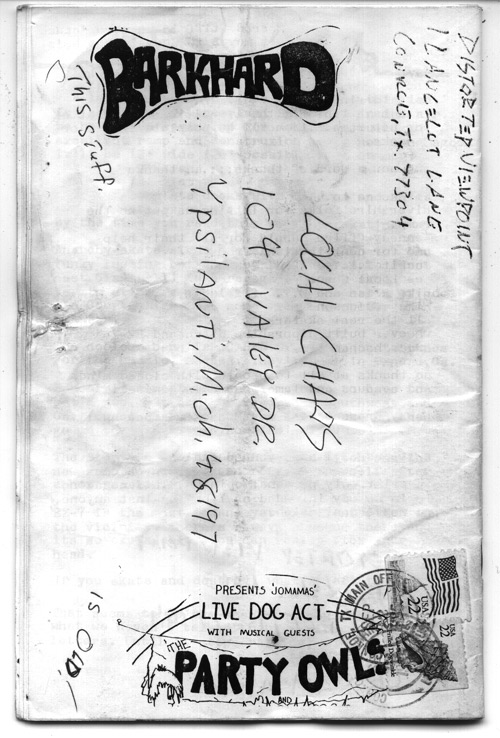 BARKHARD
This stuff.
DISTORTED VIEWPOINT
1 LANCELOT LANE
CONROE, TX. 77304
LOCAL CHAOS
104 VALLEY DR.
YPSILANTI, Mich, 48197
is OLD,
PRESENTS 'JOMAMAS'
LIVE DOG ACT
WITH MUSICAL GUESTS
THE
PARTY OWLS
AND
TX MAIN OFF
USA
22
USA
22